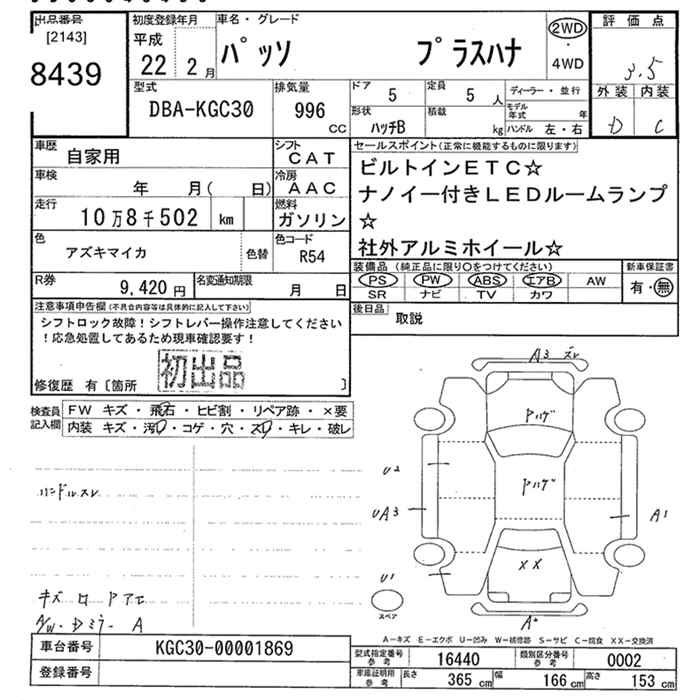 出品番号 初度登録年月 車名・グレード 2WD 評価点
[2143] 平成 パッソ プラスハナ ・
8439 22年 2月 4WD 3.5
型式 排気量 ドア 5 定員 5人 ディーラー・並行 外装 内装
DBA-KGC30 996cc 形状 ハッチB 積載 kg モデル年式 年 D C
ハンドル 左・右
車歴 自家用 シフト CAT セールスポイント(正常に機能するものに限ります)
車検 年 月( 日) 冷房 AAC ビルトインETC☆
走行 10万8千502 km 燃料 ガソリン ナノイー付きLEDルームランプ
☆
色 アズキマイカ 色替 色コード R54 社外アルミホイール☆
R券 9,420円 名変通知期限 月 日 装備品(純正品に限り○をつけてください) 新車保証書
PS PW ABS エアB AW 有・無
SR ナビ TV カワ
注意事項申告欄(不具合内容等は具体的に記入して下さい) 後日品 取説
シフトロック故障!シフトレバー操作注意してください
!応急処置してあるため現車確認要す!
初出品
修復歴 有〔箇所 〕
検査員記入欄 FW キズ・飛石・ヒビ割・リペア跡・×要
内装 キズ・汚・コゲ・穴・スレ・キレ・破レ
A3 スレ
ヤハゲ
U2
ハンドルスレ
ヤハゲ
UA3 A1
XX
U1
スペア
キズ
A/W・Dミラー A
A-キズ E-エクボ U-凹み W-補修跡 S-サビ C-腐食 XX-交換済
車台番号 KGC30-00001869 型式指定番号 参考 16440 類別区分番号 参考 0002
登録番号 車庫証明用 参考 長さ 365cm 幅 166cm 高さ 153cm